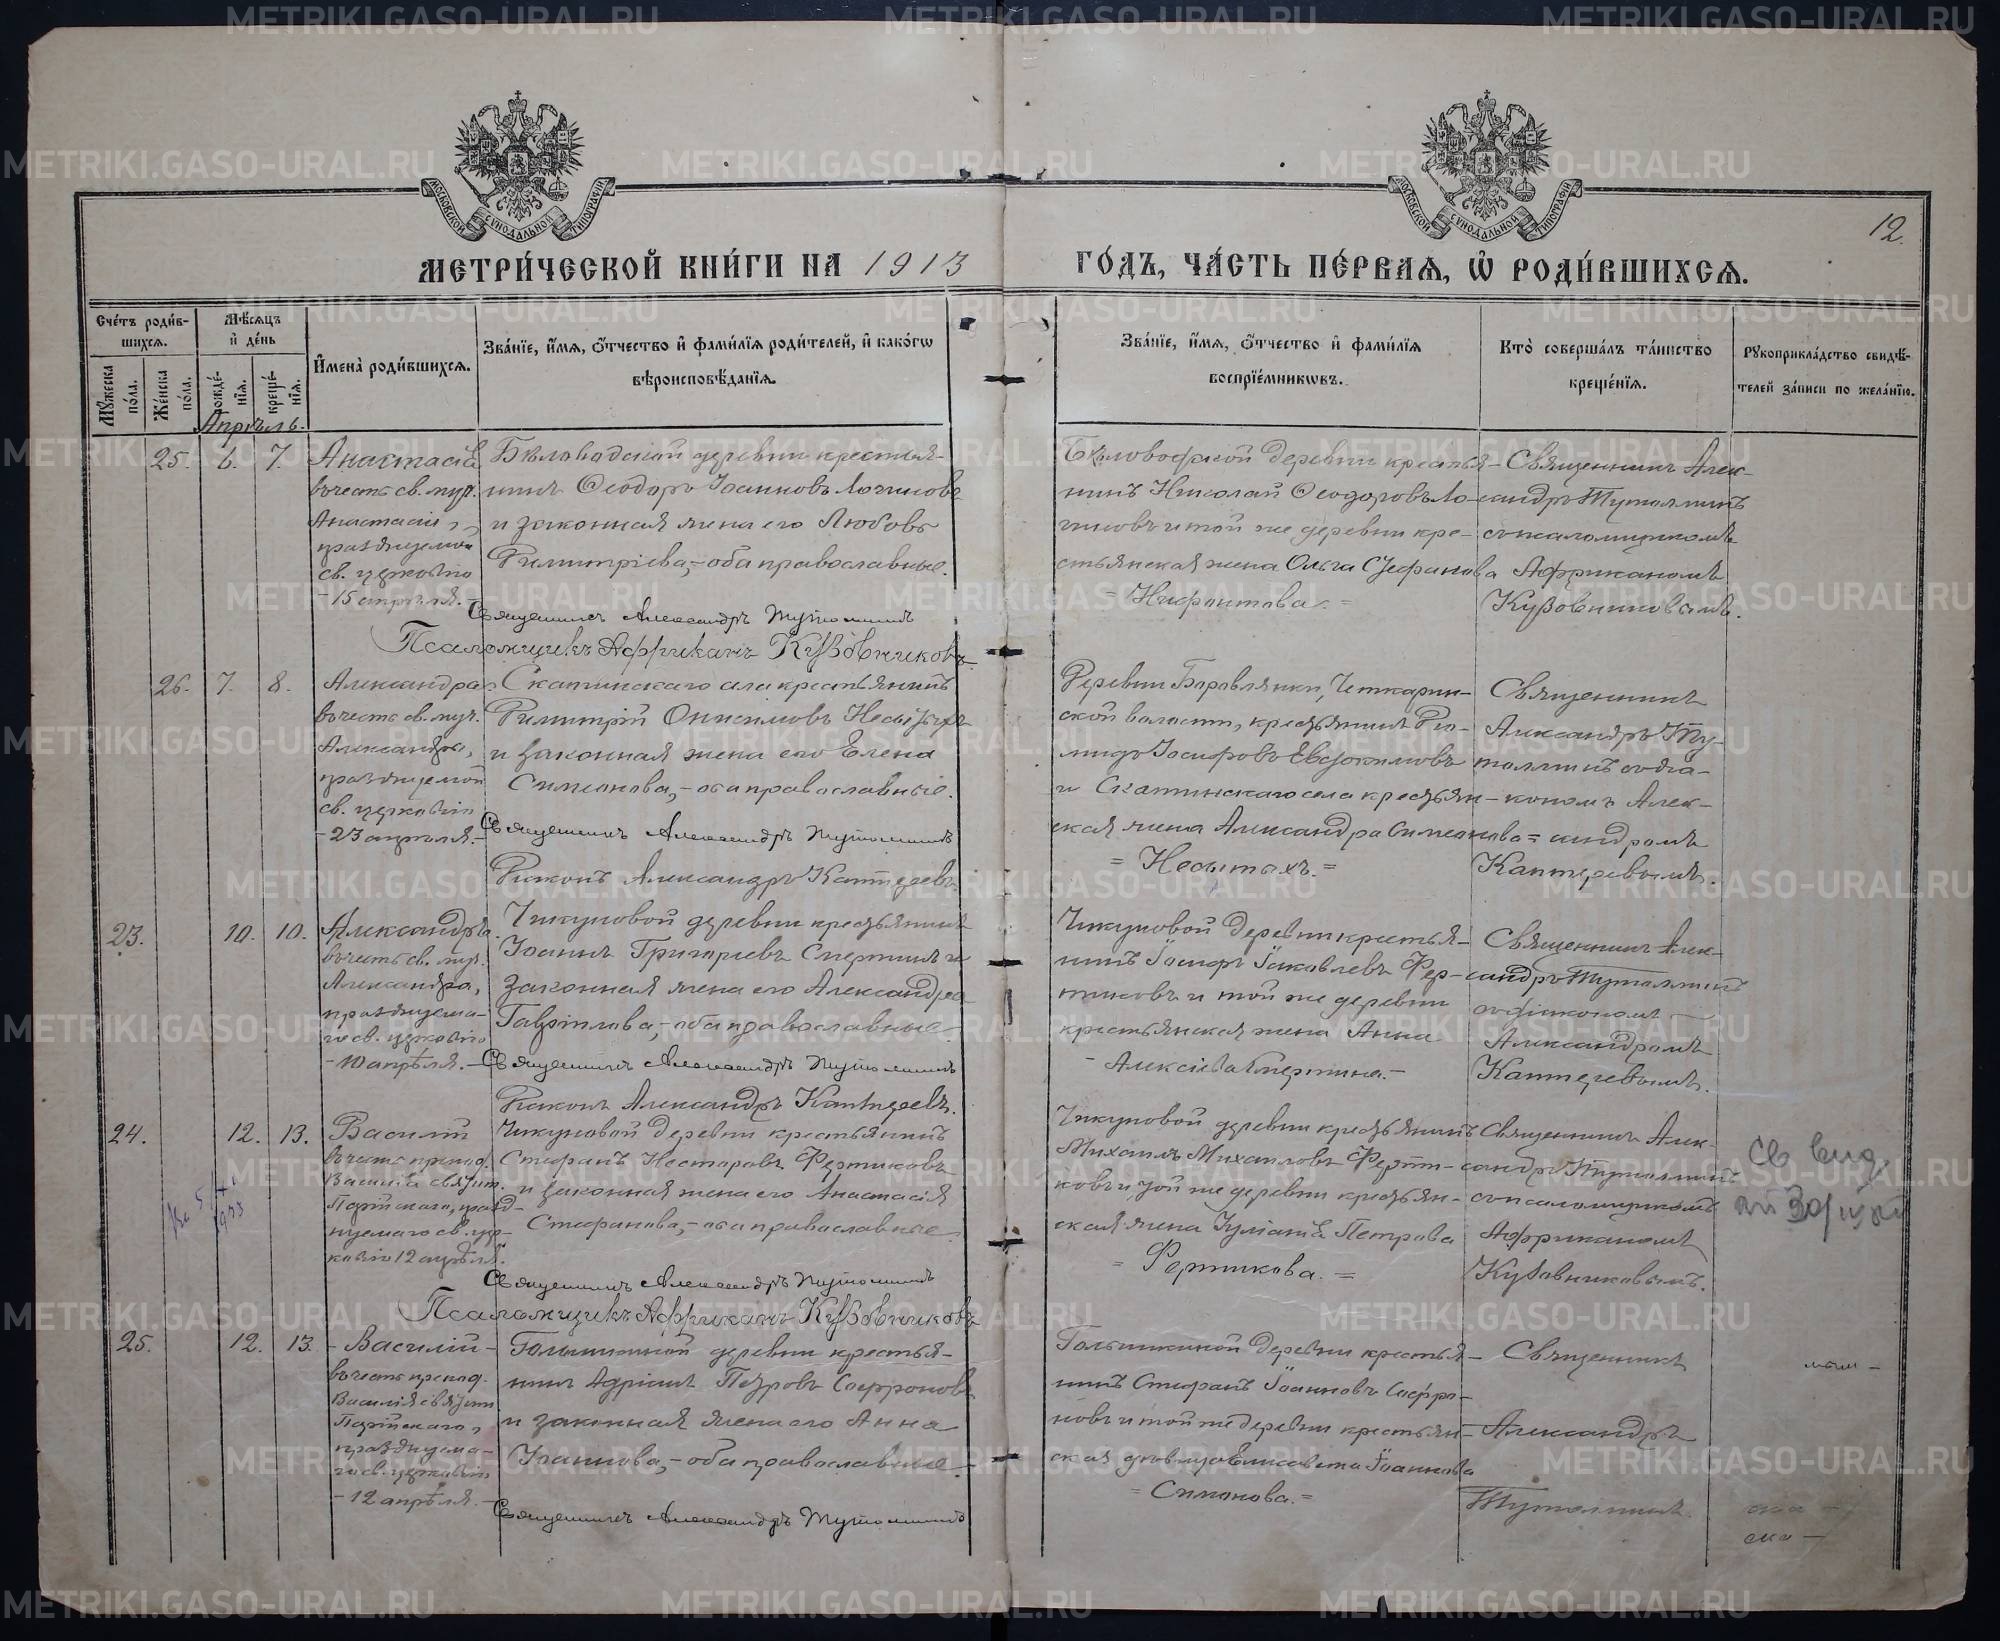 МЕТРИ́ЧЕСКОЙ КНИ́ГИ НА 1913 ГО́ДЪ, ЧА́СТЬ ПЕ́РВАЯ, Ѡ РОДИ́ВШИХСЯ.
12.
МОСКОВСКОЙ СУНОДАЛЬНОЙ ТИПОГРАФІИ
МОСКОВСКОЙ СУНОДАЛЬНОЙ ТИПОГРАФІИ
Сче́тъ роди́вшихся.
Му́жеска по́ла.
Же́нска по́ла.
Мѣ́сяцъ и де́нь
рожде́нія.
креще́нія.
Имена̀ роди́вшихся.
Зва́нїе, и́мя, ѻ́тчество и фами́лїя роди́телей, и како́гѡ
вѣроисповѣ́данїя.
Зва́нїе, и́мя, ѻ́тчество и фами́лїя
воспрїе́мникѡвъ.
Кто̀ соверша́лъ та́инство
креще́нїя.
Рукоприкла́дство свидѣ́-
телей за́писи по жела́нїю.
Апрѣль.
25. 6. 7.
Анастасія
въ честь св. муч.
Анастасіи,
празднуемой
св. церковію
- 15 апрѣля. -
Бѣловодской деревни крестья-
нинъ Ѳеодоръ Іоанновъ Логиновъ
и законная жена его Любовь
Димитріева, - оба православные.
Священникъ Александръ Тутолминъ
Псаломщикъ Африканъ Кузовниковъ
Бѣловодской деревни крестья-
нинъ Николай Ѳеодоровъ Ло-
гиновъ и той же деревни кре-
стьянская жена Ольга Стефанова
- Нифонтова. =
Священникъ Алек-
сандръ Тутолминъ
съ псаломщикомъ
Африканомъ
Кузовниковымъ.
26. 7. 8.
Александра
въ честь св. муч.
Александры,
празднуемой
св. церковію
- 23 апрѣля. -
Скатинскаго села крестьянинъ
Димитрій Онисимовъ Несытыхъ
и законная жена его Елена
Симеонова, - оба православные.
Священникъ Александръ Тутолминъ
Діаконъ Александръ Каптеревъ.
Деревни Боровлянки, Четкарин-
ской волости, крестьянинъ Дио-
мидъ Іосифовъ Евдокимовъ
и Скатинскаго села крестьян-
ская жена Александра Симеонова
= Несытыхъ. =
Священникъ
Александръ Ту-
толминъ съ діа-
кономъ Алек-
сандромъ
Каптеревымъ.
23. 10. 10.
Александръ
въ честь св. муч.
Александра,
празднуема-
го св. церковію
- 10 апрѣля. -
Чикуновой деревни крестьянинъ
Іоаннъ Григорьевъ Смертинъ и
законная жена его Александра
Гавріилова, - оба православные
Священникъ Александръ Тутолминъ
Діаконъ Александръ Каптеревъ.
Чикуновой деревни крестья-
нинъ Іосифъ Іаковлевъ Фер-
тиковъ и той же деревни
крестьянская жена Анна
- Алексіева Смертина. -
Священникъ Алек-
сандръ Тутолминъ
съ діакономъ
Александромъ
Каптеревымъ.
24. 12. 13.
Василій
въ честь препод.
Василія святит.
Парійскаго, празд-
нуемаго св. цер-
ковію 12 апрѣля.
Чикуновой деревни крестьянинъ
Стефанъ Несторовъ Фертиковъ
и законная жена его Анастасія
Стефанова, - оба православные.
Священникъ Александръ Тутолминъ
Псаломщикъ Африканъ Кузовниковъ
Чикуновой деревни крестьянинъ
Михаилъ Михаиловъ Ферти-
ковъ и той же деревни крестьян-
ская жена Іуліанія Петрова
= Фертикова. =
Священникъ Алек-
сандръ Тутолминъ
съ псаломщикомъ
Африканомъ
Кузовниковымъ.
25. 12. 13.
- Василій -
въ честь препод.
Василія святит.
Парійскаго,
празднуема-
го св. церковію
- 12 апрѣля. -
Голышкиной деревни крестья-
нинъ Адріанъ Петровъ Софроновъ
и законная жена его Анна
Іоаннова, - оба православные.
Священникъ Александръ Тутолминъ
Голышкиной деревни крестья-
нинъ Стефанъ Іоанновъ Софро-
новъ и той же деревни крестьян-
ская дѣвица Елисавета Іоаннова
= Симонова. =
Священникъ
Александръ
Тутолминъ.
METRIKI.GASO-URAL.RU